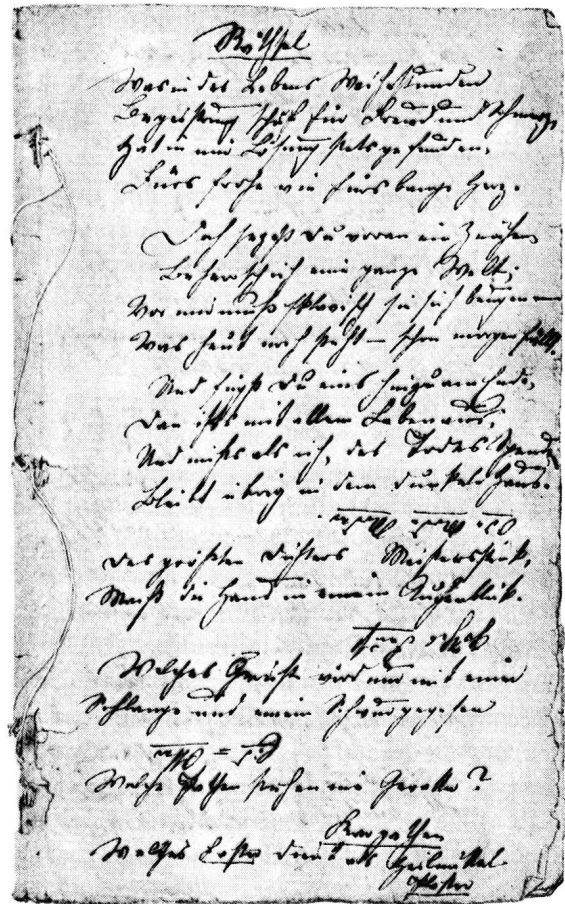 Räthsel
Was in des Lebens Weihestunden
Begeistrung schuf für Freud und Schmerz,
Hat in mir Lösung stets gefunden,
Fürs frohe wie fürs bange Herz.
Doch setzest du voran ein Zeichen
Beherrsch ich eine ganze Welt;
Vor mir muß sklavisch sie sich beugen —
Was heut noch steht – schon morgen fällt.
Und fügst du eins hinzu am Ende,
Dan ists mit allem Leben aus;
Und nichts als ich, des Todes Spende
Bleibt übrig in dem dunkeln Haus.
Ode. Mode. Moder.
Des größten Dichters Meisterstück,
Weist die Hand in einem Augenblick.
Faust
Welches Gericht wird nur mit einer
Schlange und einem Schwur gegessen
Welche Pathen stehen nie Gevatter?
Karpathen
Welches Laster dient als Heilmittel
Pflaster